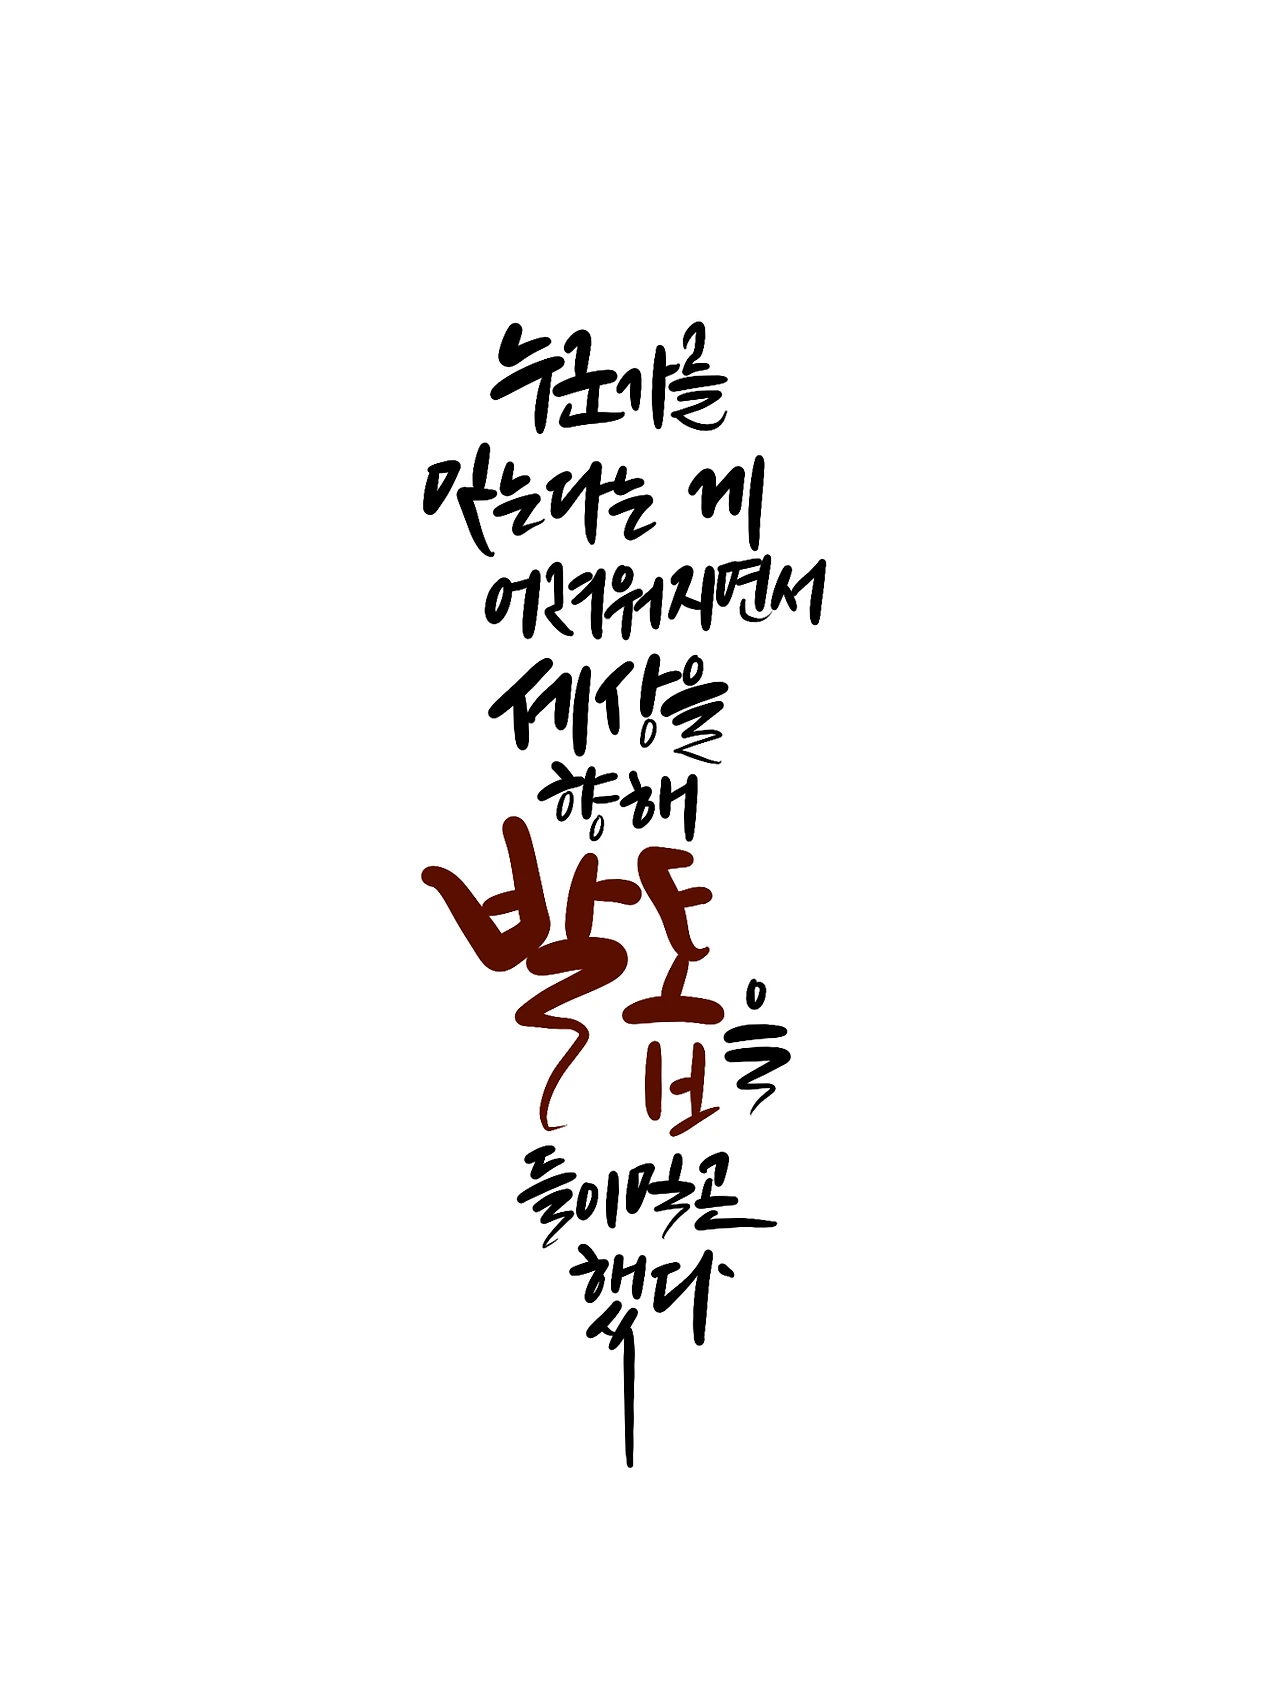 누군가를
믿는다는 게
어려워지면서
세상을
향해
발톱을
들이밀곤
했다.